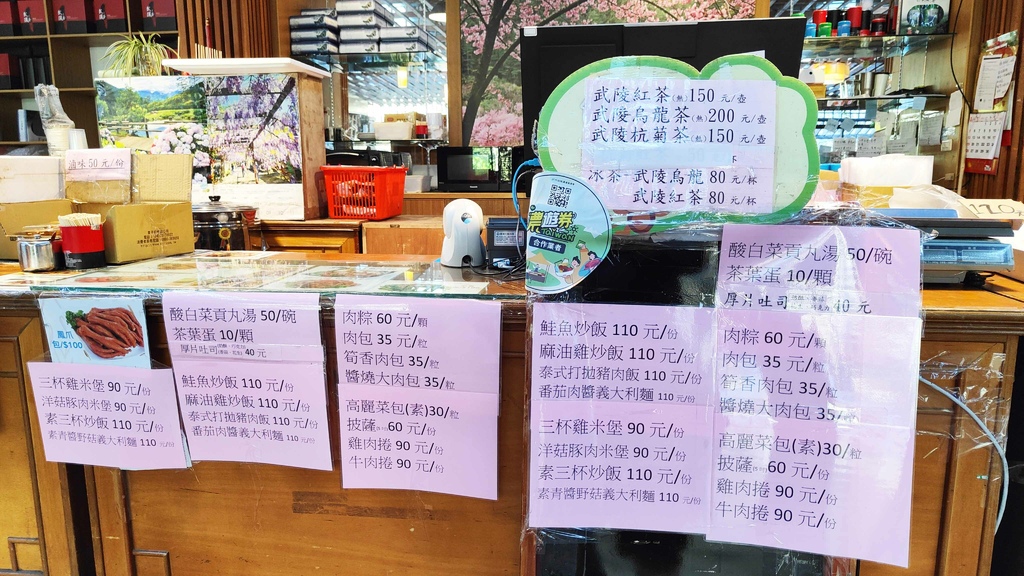 武陵紅茶(熱)150元/壺
武陵烏龍茶(熱)200元/壺
武陵杭菊茶(熱)150元/壺
杯
冰茶-武陵烏龍 80元/杯
武陵紅茶 80元/杯
滷味50元/份
農遊券
合作業者
鳳爪
包/$100
酸白菜貢丸湯 50/碗
茶葉蛋 10/顆
厚片吐司 40 元
鮭魚炒飯 110 元/份
麻油雞炒飯 110 元/份
泰式打拋豬肉飯 110 元/份
番茄肉醬義大利麵 110 元/份
三杯雞米堡 90 元/份
洋菇豚肉米堡 90 元/份
素三杯炒飯 110 元/份
素青醬野菇義大利麵 110 元/份
肉粽 60 元/顆
肉包 35 元/粒
筍香肉包 35/粒
醬燒大肉包 35/粒
高麗菜包(素)30/粒
披薩 60 元/份
雞肉捲 90 元/份
牛肉捲 90 元/份
鮭魚炒飯 110 元/份
麻油雞炒飯 110 元/份
泰式打拋豬肉飯 110 元/份
番茄肉醬義大利麵 110 元/份
三杯雞米堡 90 元/份
洋菇豚肉米堡 90 元/份
素三杯炒飯 110 元/份
素青醬野菇義大利麵 110 元/份
酸白菜貢丸湯 50/碗
茶葉蛋 10/顆
厚片吐司 40 元
肉粽 60 元/顆
肉包 35 元/粒
筍香肉包 35/粒
醬燒大肉包 35/粒
高麗菜包(素)30/粒
披薩 60 元/份
雞肉捲 90 元/份
牛肉捲 90 元/份